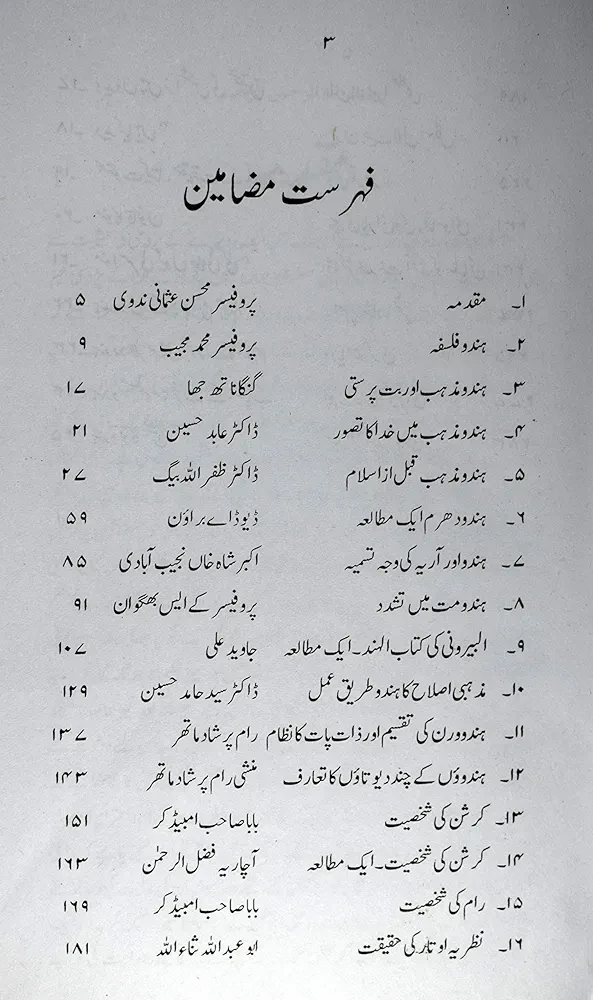 ۳
فہرست مضامین
۱۔ مقدمہ پروفیسر محسن عثمانی ندوی ۵
۲۔ ہندو فلسفہ پروفیسر محمد مجیب ۹
۳۔ ہندو مذہب اور بت پرستی گنگا ناتھ جھا ۱۷
۴۔ ہندو مذہب میں خدا کا تصور ڈاکٹر عابد حسین ۲۱
۵۔ ہندو مذہب قبل از اسلام ڈاکٹر ظفر اللہ بیگ ۲۷
۶۔ ہندو دھرم ایک مطالعہ ڈیوڈ اے براؤن ۵۹
۷۔ ہندو اور آریہ کی وجہ تسمیہ اکبر شاہ خاں نجیب آبادی ۸۵
۸۔ ہندو مت میں تشدد پروفیسر کے ایس بھگوان ۹۱
۹۔ البیرونی کی کتاب الہند۔ ایک مطالعہ جاوید علی ۱۰۷
۱۰۔ مذہبی اصلاح کا ہندو طریق عمل ڈاکٹر سید حامد حسین ۱۲۹
۱۱۔ ہندو ورن کی تقسیم اور ذات پات کا نظام رام پرشاد ماتھر ۱۳۷
۱۲۔ ہندوؤں کے چند دیوتاؤں کا تعارف منشی رام پرشاد ماتھر ۱۴۳
۱۳۔ کرشن کی شخصیت بابا صاحب امبیڈکر ۱۵۱
۱۴۔ کرشن کی شخصیت۔ ایک مطالعہ آچاریہ فضل الرحمٰن ۱۶۳
۱۵۔ رام کی شخصیت بابا صاحب امبیڈکر ۱۶۹
۱۶۔ نظریہ اوتار کی حقیقت ابو عبداللہ ثناء اللہ ۱۸۱